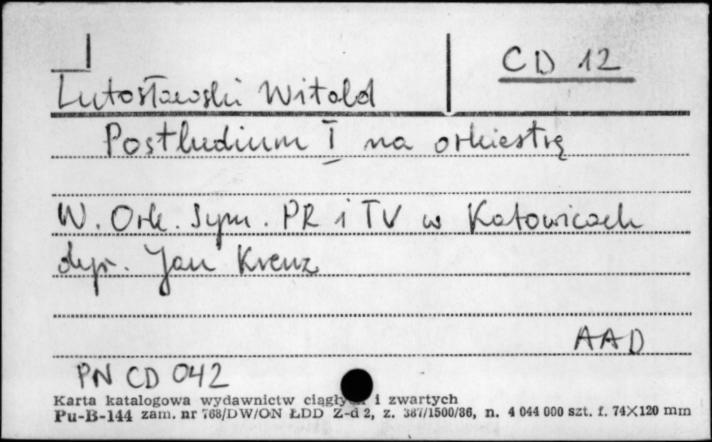 CD 12
Lutosławski Witold
Postludium I na orkiestrę
W. Ork. Sym. PR i TV w Katowicach
dyr. Jan Krenz
AAD
PN CD 042
Karta katalogowa wydawnictw ciągłych i zwartych
Pu-B-144 zam. nr 768/DW/ON ŁDD Z-d 2, z. 387/1500/86, n. 4 044 000 szt. f. 74X120 mm